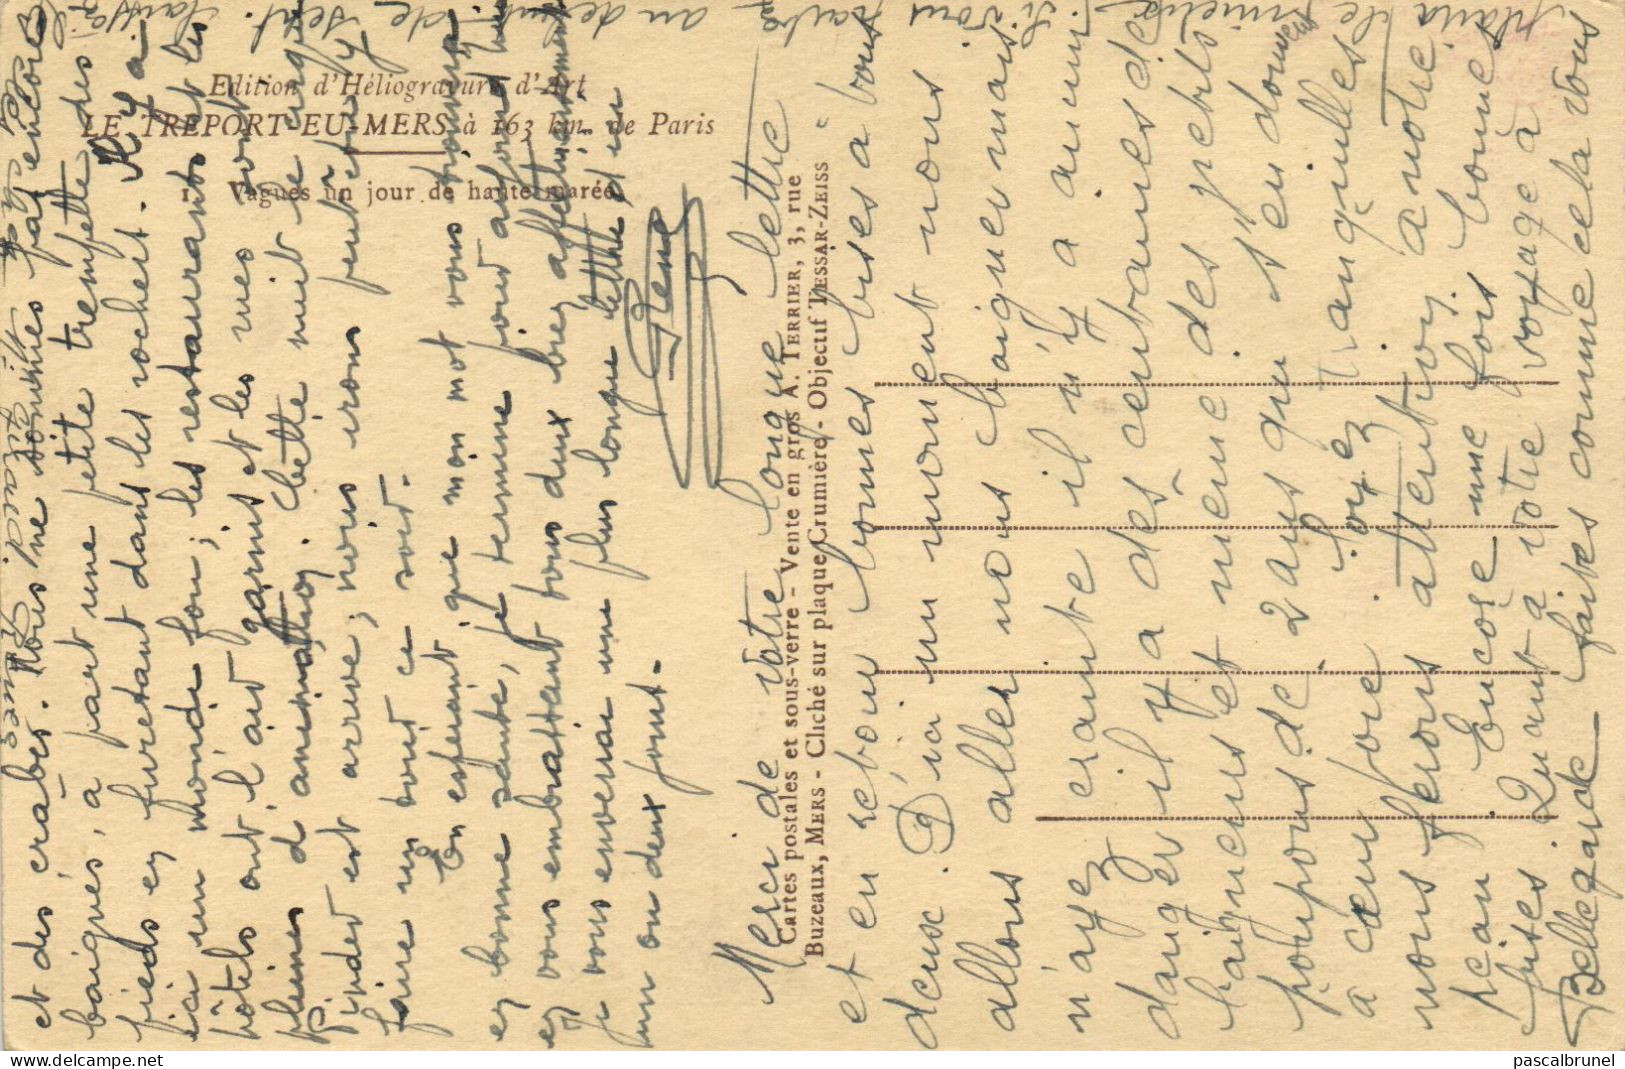 Edition d'Héliogravure d'Art
LE TREPORT-EU-MERS à 163 km. de Paris
Vagues un jour de haute marée
Cartes postales et sous-verre - Vente en gros A. TERRIER, 3, rue
Buzeaux, MERS - Cliché sur plaque Crumière - Objectif TESSAR-ZEISS
et des crabes. Nous ne sommes pas encore
baignés, à part une petite trempette des
pieds en furetant dans les rochers. Il y a
ici un monde fou ; les restaurants et les
hôtels ont l'air garnis et les rues sont
pleines d'animation. Cette nuit le cirque
Pinder est arrivé ; nous irons peut-être y
faire un tour ce soir.
En espérant que mon mot vous trouvera
en bonne santé, je termine pour aujourd'hui
en vous embrassant tous deux bien affectueusement
Je vous enverrai une plus longue lettre d'ici
un ou deux jours.
René
Merci de votre longue lettre
et en retour bonnes bises à vous
deux. D'ici un moment nous
allons aller nous baigner mais
n'ayez crainte il n'y a aucun
danger il y a des centaines de
baigneurs et même des petits
poupons de 2 ans qui s'en donnent
à cœur joie. Soyez tranquilles
nous ferons attention à notre
Jean. Encore une fois bonnes
bises. Quant à votre voyage à
Bellegarde faites comme cela vous
plaira le mieux. Si vous
au début de sept.